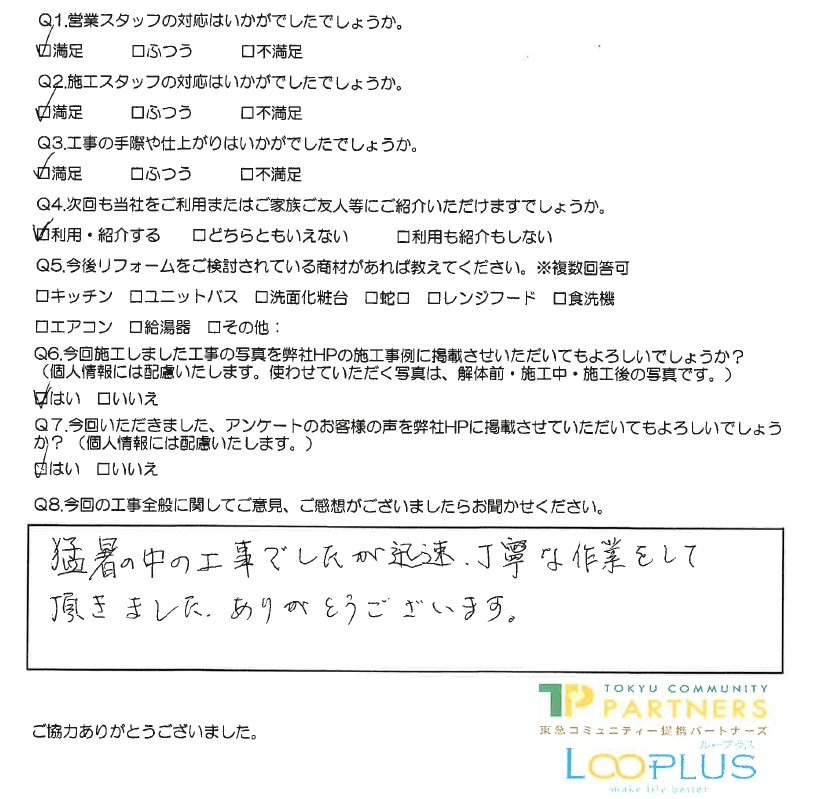 Q1.営業スタッフの対応はいかがでしたでしょうか。
☑満足 □ふつう □不満足
Q2.施工スタッフの対応はいかがでしたでしょうか。
☑満足 □ふつう □不満足
Q3.工事の手際や仕上がりはいかがでしたでしょうか。
☑満足 □ふつう □不満足
Q4.次回も当社をご利用またはご家族ご友人等にご紹介いただけますでしょうか。
☑利用・紹介する □どちらともいえない □利用も紹介もしない
Q5.今後リフォームをご検討されている商材があれば教えてください。※複数回答可
□キッチン □ユニットバス □洗面化粧台 □蛇口 □レンジフード □食洗機
□エアコン □給湯器 □その他：
Q6.今回施工しました工事の写真を弊社HPの施工事例に掲載させいただいてもよろしいでしょうか？
（個人情報には配慮いたします。使わせていただく写真は、解体前・施工中・施工後の写真です。）
☑はい □いいえ
Q7.今回いただきました、アンケートのお客様の声を弊社HPに掲載させていただいてもよろしいでしょう
か？（個人情報には配慮いたします。）
☑はい □いいえ
Q8.今回の工事全般に関してご意見、ご感想がございましたらお聞かせください。
猛暑の中の工事でしたが迅速、丁寧な作業をして
頂きました、ありがとうございます。
TP TOKYU COMMUNITY
PARTNERS
東急コミュニティー提携パートナーズ
ご協力ありがとうございました。
ループラス
LOOPLUS
make life better